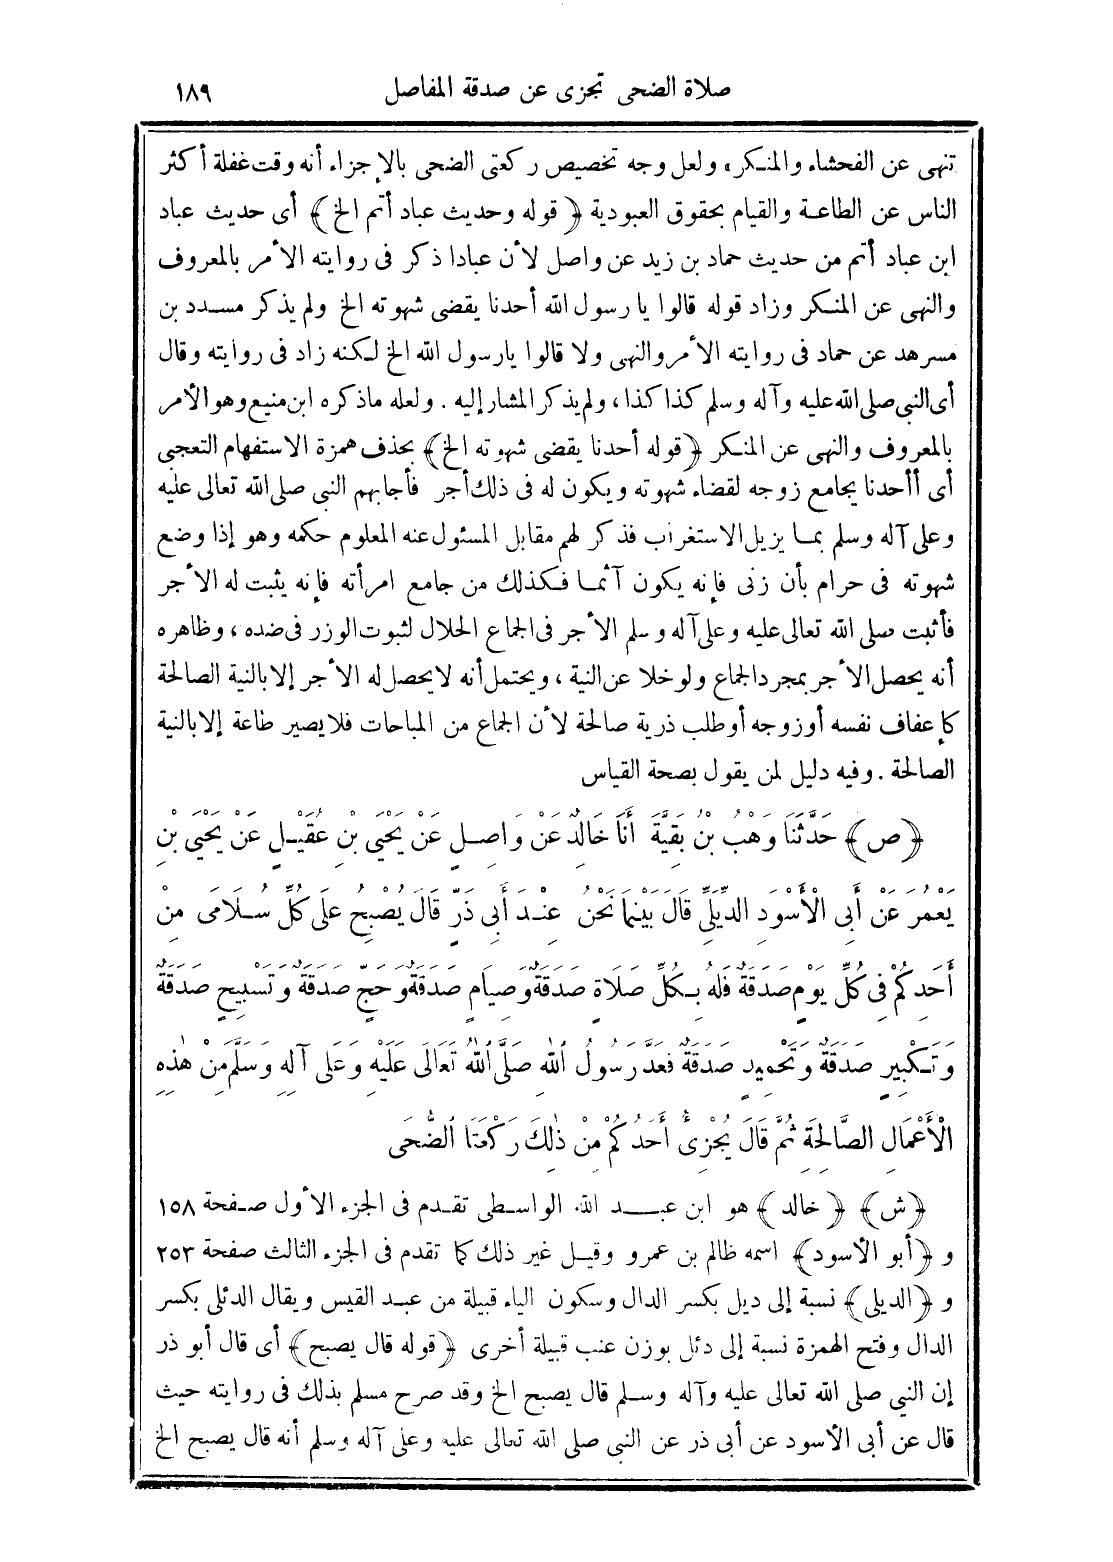 صلاة الضحى تجزى عن صدقة المفاصل ١٨٩
تنهى عن الفحشاء والمنكر، ولعل وجه تخصيص ركعتى الضحى بالإجزاء أنه وقت غفلة أكثر
الناس عن الطاعة والقيام بحقوق العبودية ﴿قوله وحديث عباد أتم الخ﴾ أى حديث عباد
ابن عباد أتم من حديث حماد بن زيد عن واصل لأن عبادا ذكر فى روايته الأمر بالمعروف
والنهى عن المنكر وزاد قوله قالوا يا رسول الله أحدنا يقضى شهوته الخ ولم يذكر مسدد بن
مسرهد عن حماد فى روايته الأمر والنهى ولا قالوا يارسول الله الخ لكنه زاد فى روايته وقال
أى النبى صلى الله عليه وآله وسلم كذا كذا، ولم يذكر المشار إليه . ولعله ماذكره ابن منيع وهو الأمر
بالمعروف والنهى عن المنكر ﴿قوله أحدنا يقضى شهوته الخ﴾ بحذف همزة الاستفهام التعجبى
أى أأحدنا يجامع زوجه لقضاء شهوته ويكون له فى ذلك أجر فأجابهم النبى صلى الله تعالى عليه
وعلى آله وسلم بما يزيل الاستغراب فذكر لهم مقابل المسئول عنه المعلوم حكمه وهو إذا وضع
شهوته فى حرام بأن زنى فإنه يكون آثما فكذلك من جامع امرأته فإنه يثبت له الأجر
فأثبت صلى الله تعالى عليه وعلى آله وسلم الأجر فى الجماع الحلال لثبوت الوزر فى ضده، وظاهره
أنه يحصل الأجر بمجرد الجماع ولو خلا عن النية، ويحتمل أنه لا يحصل له الأجر إلا بالنية الصالحة
كإعفاف نفسه أو زوجه أو طلب ذرية صالحة لأن الجماع من المباحات فلا يصير طاعة إلا بالنية
الصالحة . وفيه دليل لمن يقول بصحة القياس
﴿ص﴾ حَدَّثَنَا وَهْبُ بْنُ بَقِيَّةَ أَنَا خَالِدٌ عَنْ وَاصِلٍ عَنْ يَحْيَى بْنِ عُقَيْلٍ عَنْ يَحْيَى بْنِ
يَعْمُرَ عَنْ أَبِى الْأَسْوَدِ الدِّيلِىِّ قَالَ بَيْنَمَا نَحْنُ عِنْدَ أَبِى ذَرٍّ قَالَ يُصْبِحُ عَلَى كُلِّ سُلَامَى مِنْ
أَحَدِكُمْ فِى كُلِّ يَوْمٍ صَدَقَةٌ فَلَهُ بِكُلِّ صَلَاةٍ صَدَقَةٌ وَصِيَامٍ صَدَقَةٌ وَحَجٍّ صَدَقَةٌ وَتَسْبِيحٍ صَدَقَةٌ
وَتَكْبِيرٍ صَدَقَةٌ وَتَحْمِيدٍ صَدَقَةٌ فَعَدَّ رَسُولُ اللهِ صَلَّى اللهُ تَعَالَى عَلَيْهِ وَعَلَى آلِهِ وَسَلَّمَ مِنْ هٰذِهِ
الْأَعْمَالِ الصَّالِحَةِ ثُمَّ قَالَ يُجْزِئُ أَحَدَكُمْ مِنْ ذٰلِكَ رَكْعَتَا الضُّحَى
﴿ش﴾ ﴿خالد﴾ هو ابن عبد الله الواسطى تقدم فى الجزء الأول صفحة ١٥٨
و﴿أبو الأسود﴾ اسمه ظالم بن عمرو وقيل غير ذلك كما تقدم فى الجزء الثالث صفحة ٢٥٣
و﴿الديلى﴾ نسبة إلى ديل بكسر الدال وسكون الياء قبيلة من عبد القيس ويقال الدئلى بكسر
الدال وفتح الهمزة نسبة إلى دئل بوزن عنب قبيلة أخرى ﴿قوله قال يصبح﴾ أى قال أبو ذر
إن النبي صلى الله تعالى عليه وآله وسلم قال يصبح الخ وقد صرح مسلم بذلك فى روايته حيث
قال عن أبى الأسود عن أبى ذر عن النبى صلى الله تعالى عليه وعلى آله وسلم أنه قال يصبح الخ